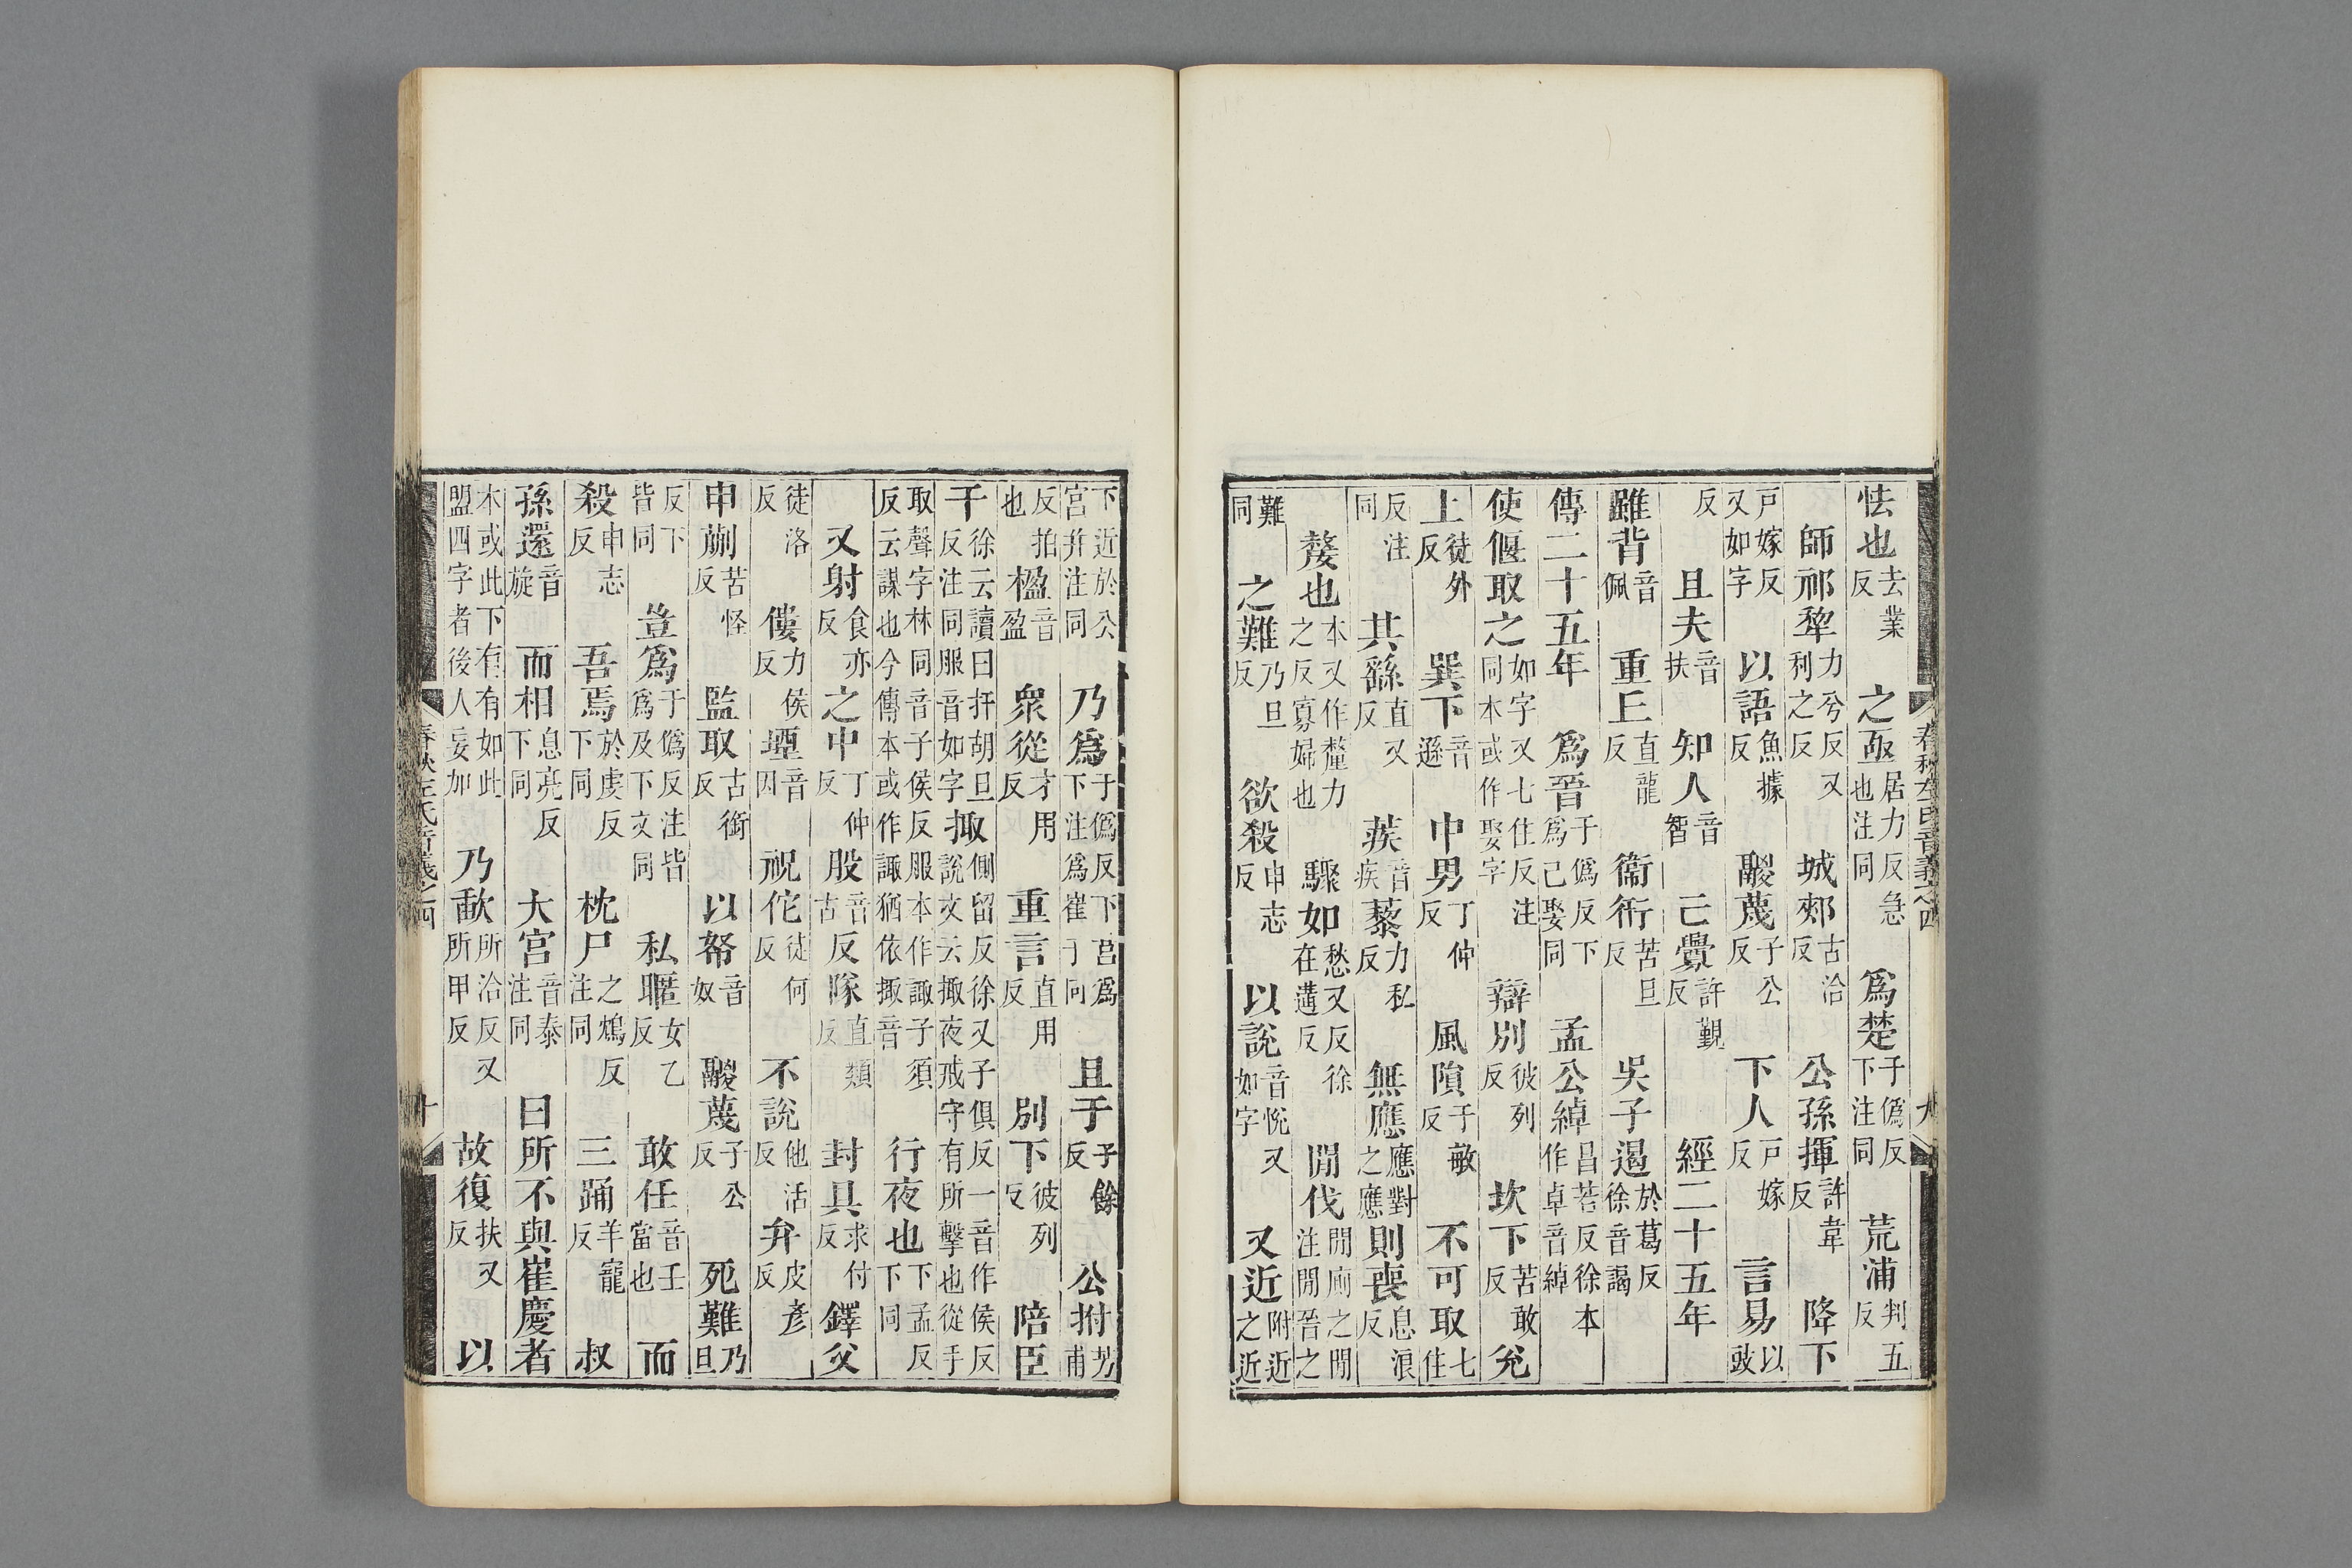 怯也去業反 之亟居力反急也注同 爲楚于僞反下注同 荒浦判五反
師祁犂力兮反又利之反 城郟古洽反 公孫揮許韋反 降下
戶嫁反又如字 以語魚據反 鬷蔑子公反 下人戶嫁反 言易以豉
反 且夫音扶 知人音智 己釁許覲反 經二十五年
雖背音佩 重丘直龍反 衞衎苦旦反 吳子遏於葛反徐音謁
傳二十五年 爲晉于僞反下爲己娶同 孟公綽昌若反徐本作卓音綽
使偃取之如字又七住反注同本或作娶字 辯別彼列反 坎下苦敢反 兌
上徒外反 巽下音遜 中男丁仲反 風隕于敏反 不可取七住
反注同 其繇直又反 蒺音疾 藜力私反 無應應對之應 則喪息浪反
嫠也本又作釐力之反寡婦也 驟如愁又反徐在遘反 閒伐閒廁之閒注閒晉之
難同 之難乃旦反 欲殺申志反 以說音悅又如字 又近附近之近
春秋左氏音義之四 九
下近於公宮幷注同 乃爲于僞反下注爲崔子同宮爲 且于子餘反 公拊芳甫
反拍也 楹音盈 衆從才用反 重言直用反 別下彼列反 陪臣
干徐云讀曰扞胡旦反注同服音如字 掫側留反徐又子俱反一音作侯反說文云掫夜戒守有所擊也從手
取聲字林同音子侯反服本作諏子須反云謀也今傳本或作諏猶依掫音 行夜也下孟反下同
又射食亦反 之中丁仲反 股音古 反隊直類反 封具求付反 鐸父
徒洛反 僂力侯反 堙音因 祝佗徒何反 不說他活反 弁皮彥反
申蒯苦怪反 監取古銜反 以帑音奴 鬷蔑子公反 死難乃旦
反下皆同 豈爲于僞反注皆爲及下文同 私暱女乙反 敢任音壬當也 而
殺申志反 吾焉於虔反下同 枕尸之鴆反注同 三踊羊寵反 叔
孫還音旋 而相息亮反下同 大宮音泰注同 曰所不與崔慶者
本或此下有有如此盟四字者後人妄加 乃歃所洽反又所甲反 故復扶又反 以
春秋左氏音義之四 十